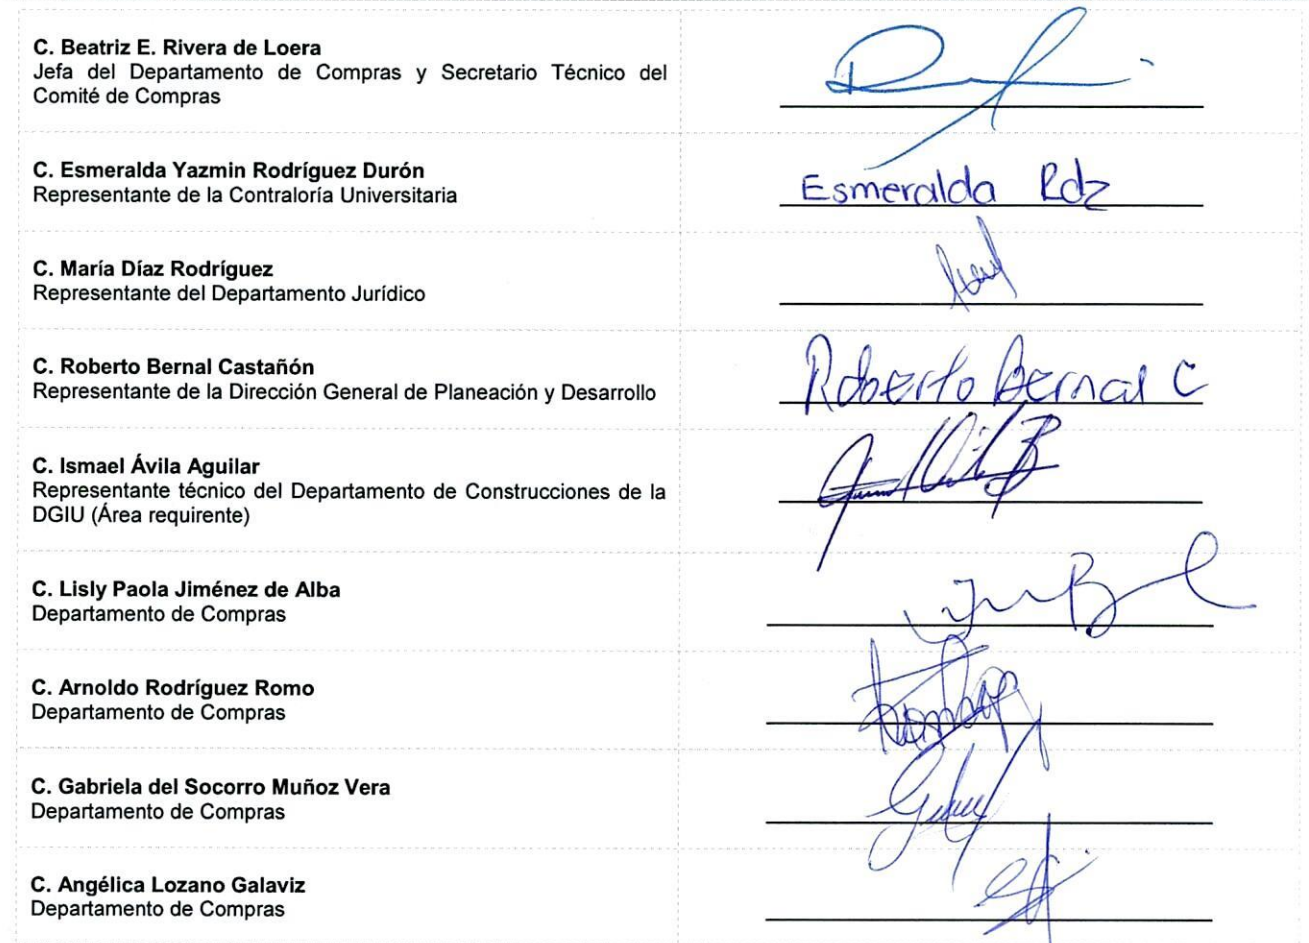 C. Beatriz E. Rivera de Loera
Jefa del Departamento de Compras y Secretario Técnico del
Comité de Compras
C. Esmeralda Yazmin Rodríguez Durón
Esmeralda Rdz
Representante de la Contraloría Universitaria
C. María Díaz Rodríguez
Representante del Departamento Jurídico
C. Roberto Bernal Castañón
Roberto Bernal C
Representante de la Dirección General de Planeación y Desarrollo
C. Ismael Ávila Aguilar
Representante técnico del Departamento de Construcciones de la
DGIU (Área requirente)
C. Lisly Paola Jiménez de Alba
Departamento de Compras
C. Arnoldo Rodríguez Romo
Departamento de Compras
C. Gabriela del Socorro Muñoz Vera
Departamento de Compras
C. Angélica Lozano Galaviz
Departamento de Compras